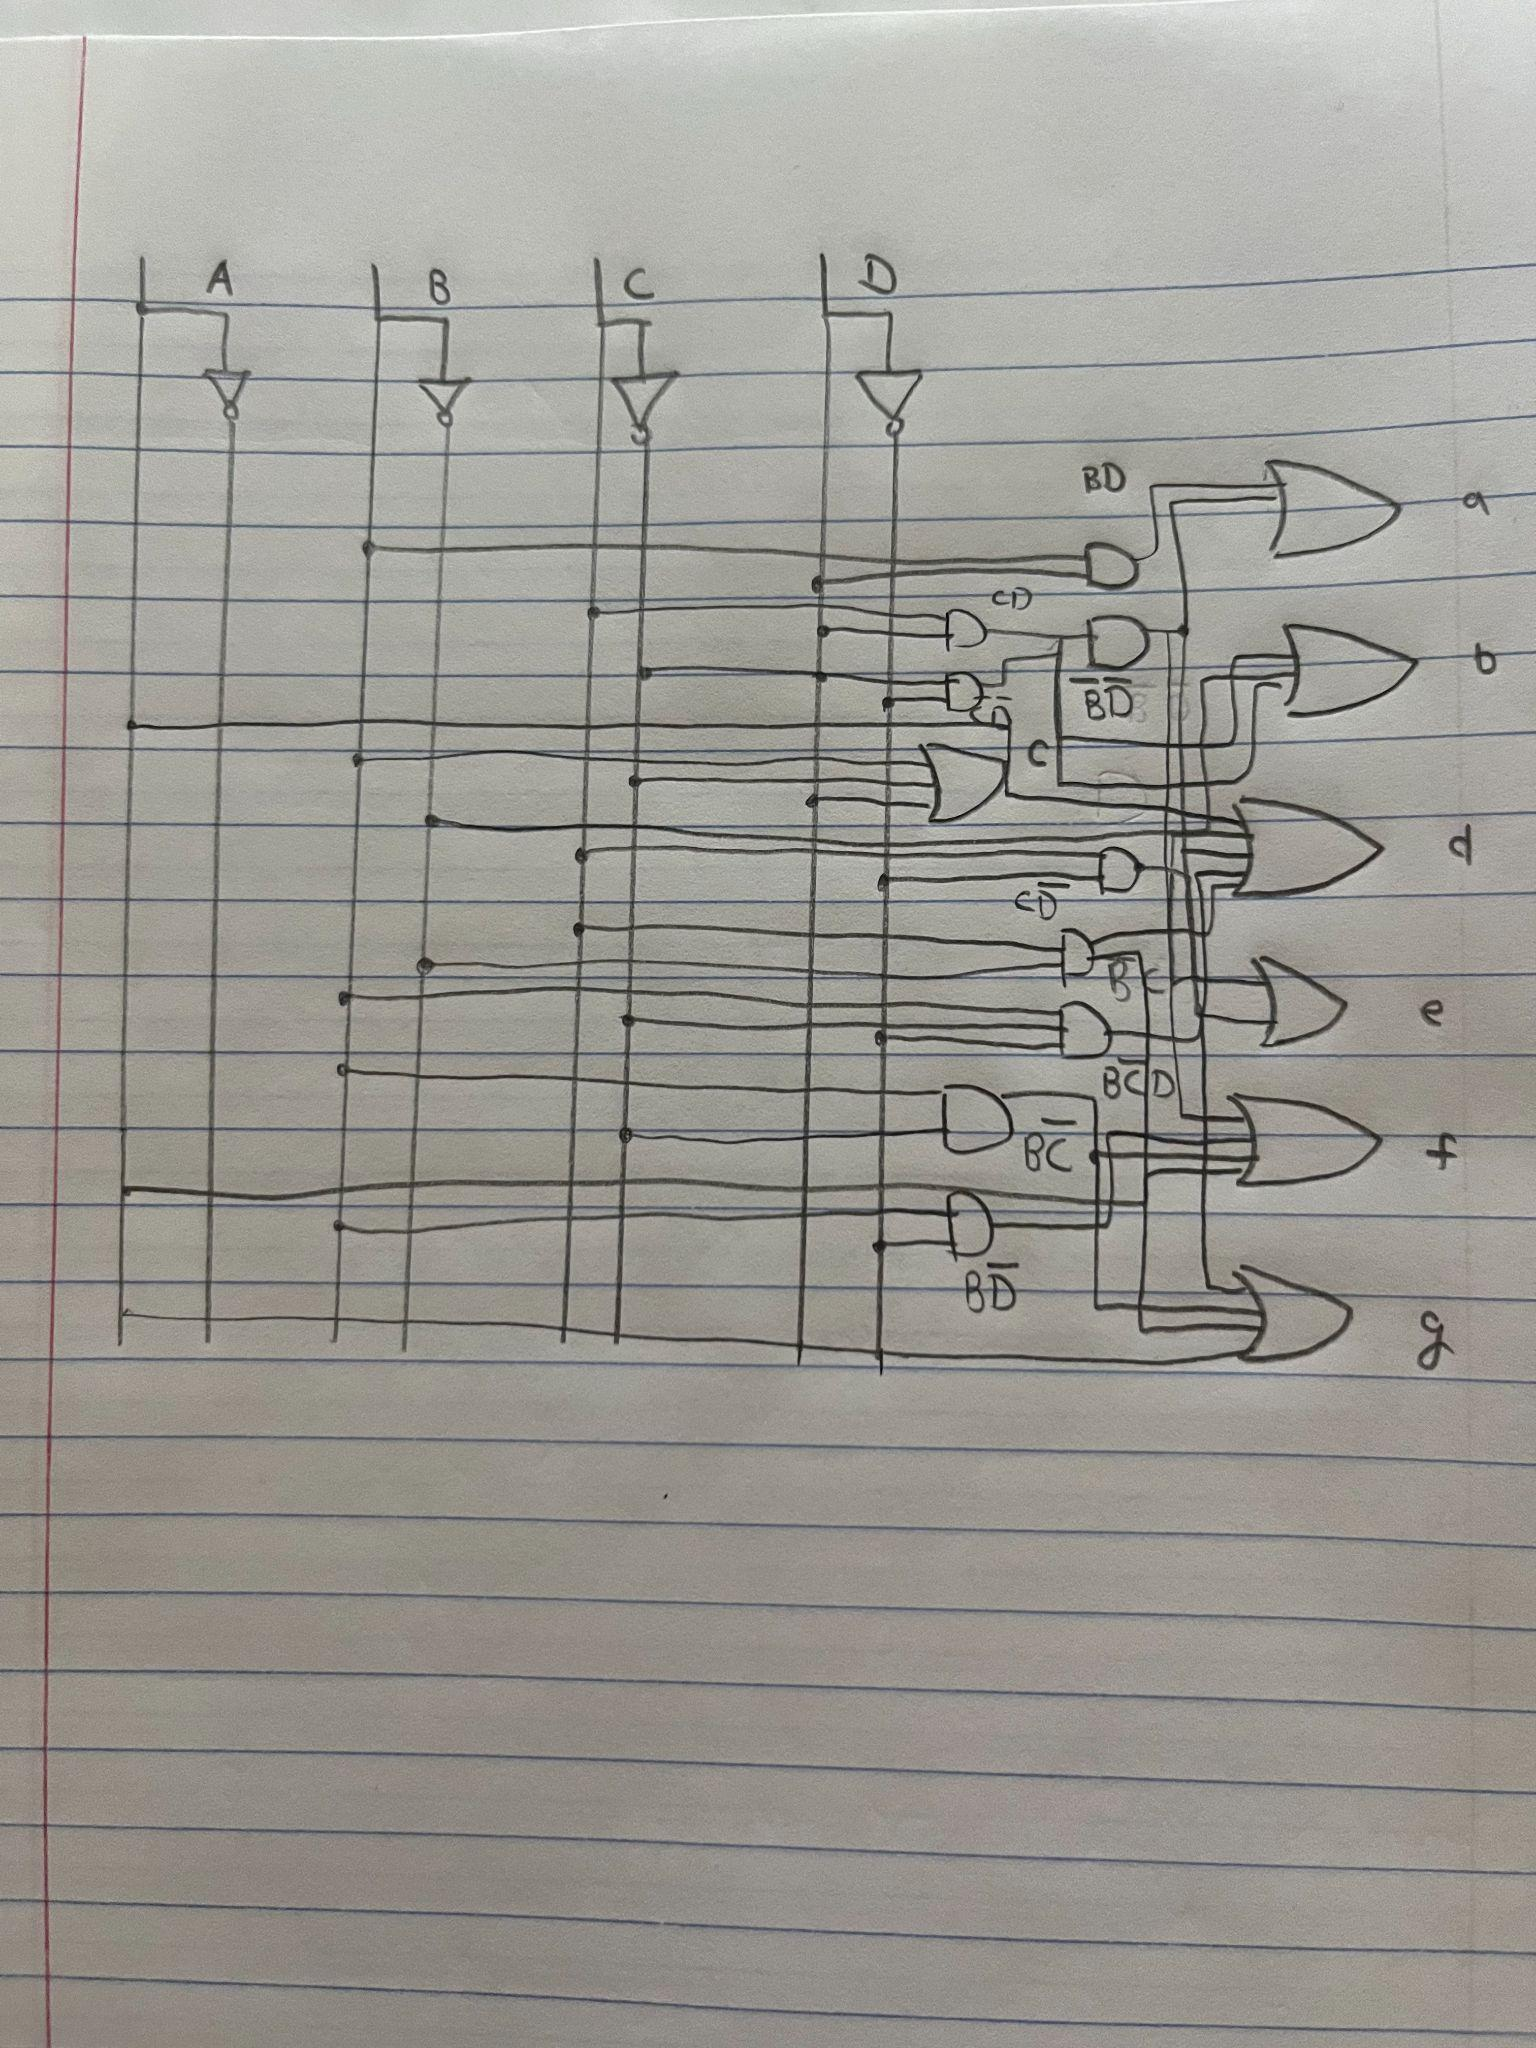 A B C D
BD
a
CD
b
B̅D̅
C̅D̅
C
d
CD̅
B̅C
e
BC̅D
BC̅
f
BD̅
g